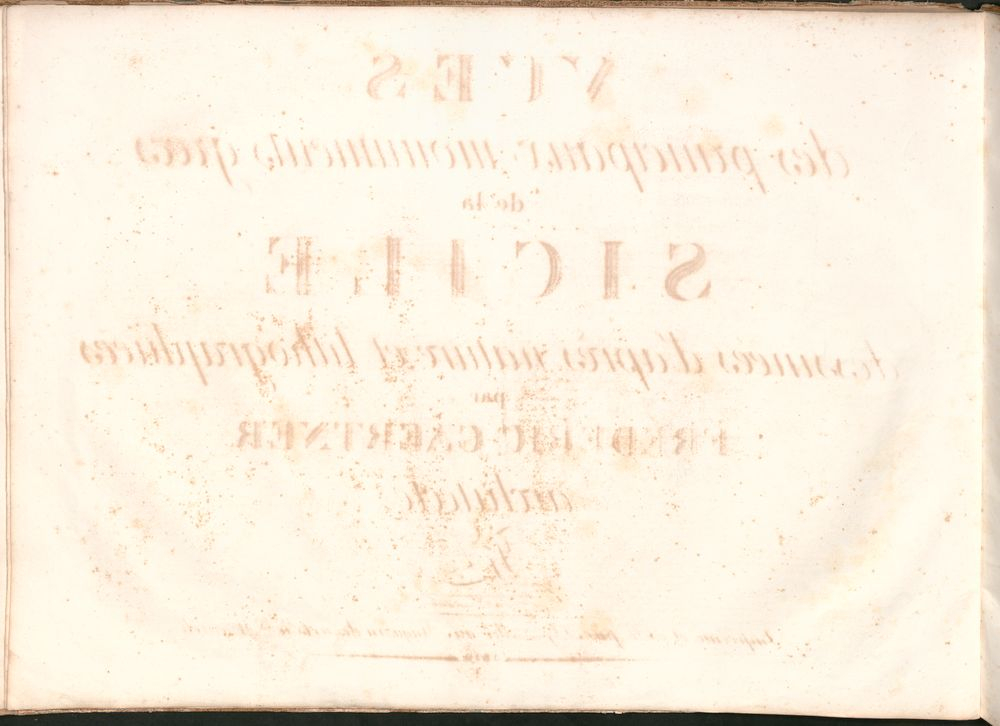 VUES
des principaux monumens grecs
de la
SICILE
dessinées d'après nature et lithographiées
par
FREDERIC GAERTNER
architecte